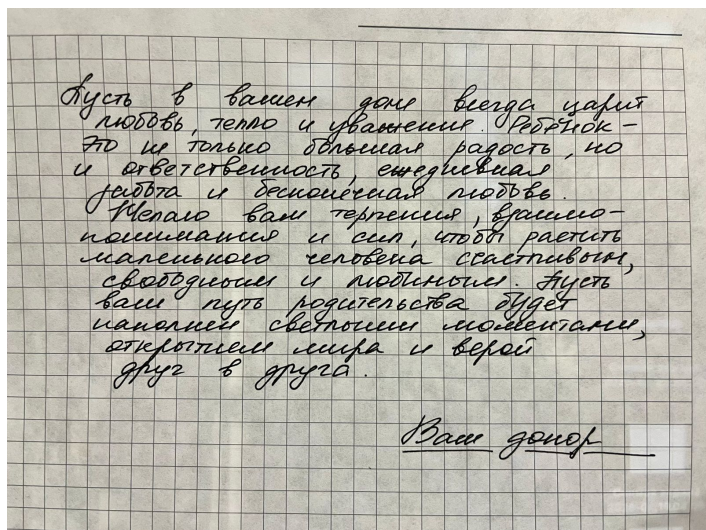 Пусть в вашем доме всегда царит
любовь, тепло и уважения. Ребёнок –
это не только большая радость, но
и ответственность, ежедневная
забота и бесконечная любовь.
Желаю вам терпения, взаимо-
понимания и сил, чтобы растить
маленького человека счастливым,
свободным и любимым. Пусть
ваш путь родительства будет
наполнен светлыми моментами,
открытием мира и верой
друг в друга.
Ваш донор